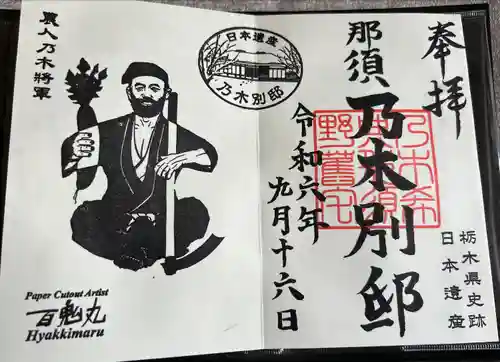 奉拝
那須乃木別邸
栃木県史跡
日本遺産
令和六年
九月十六日
日本遺産
乃木別邸
農人乃木將軍
Paper Cutout Artist
百鬼丸
Hyakkimaru